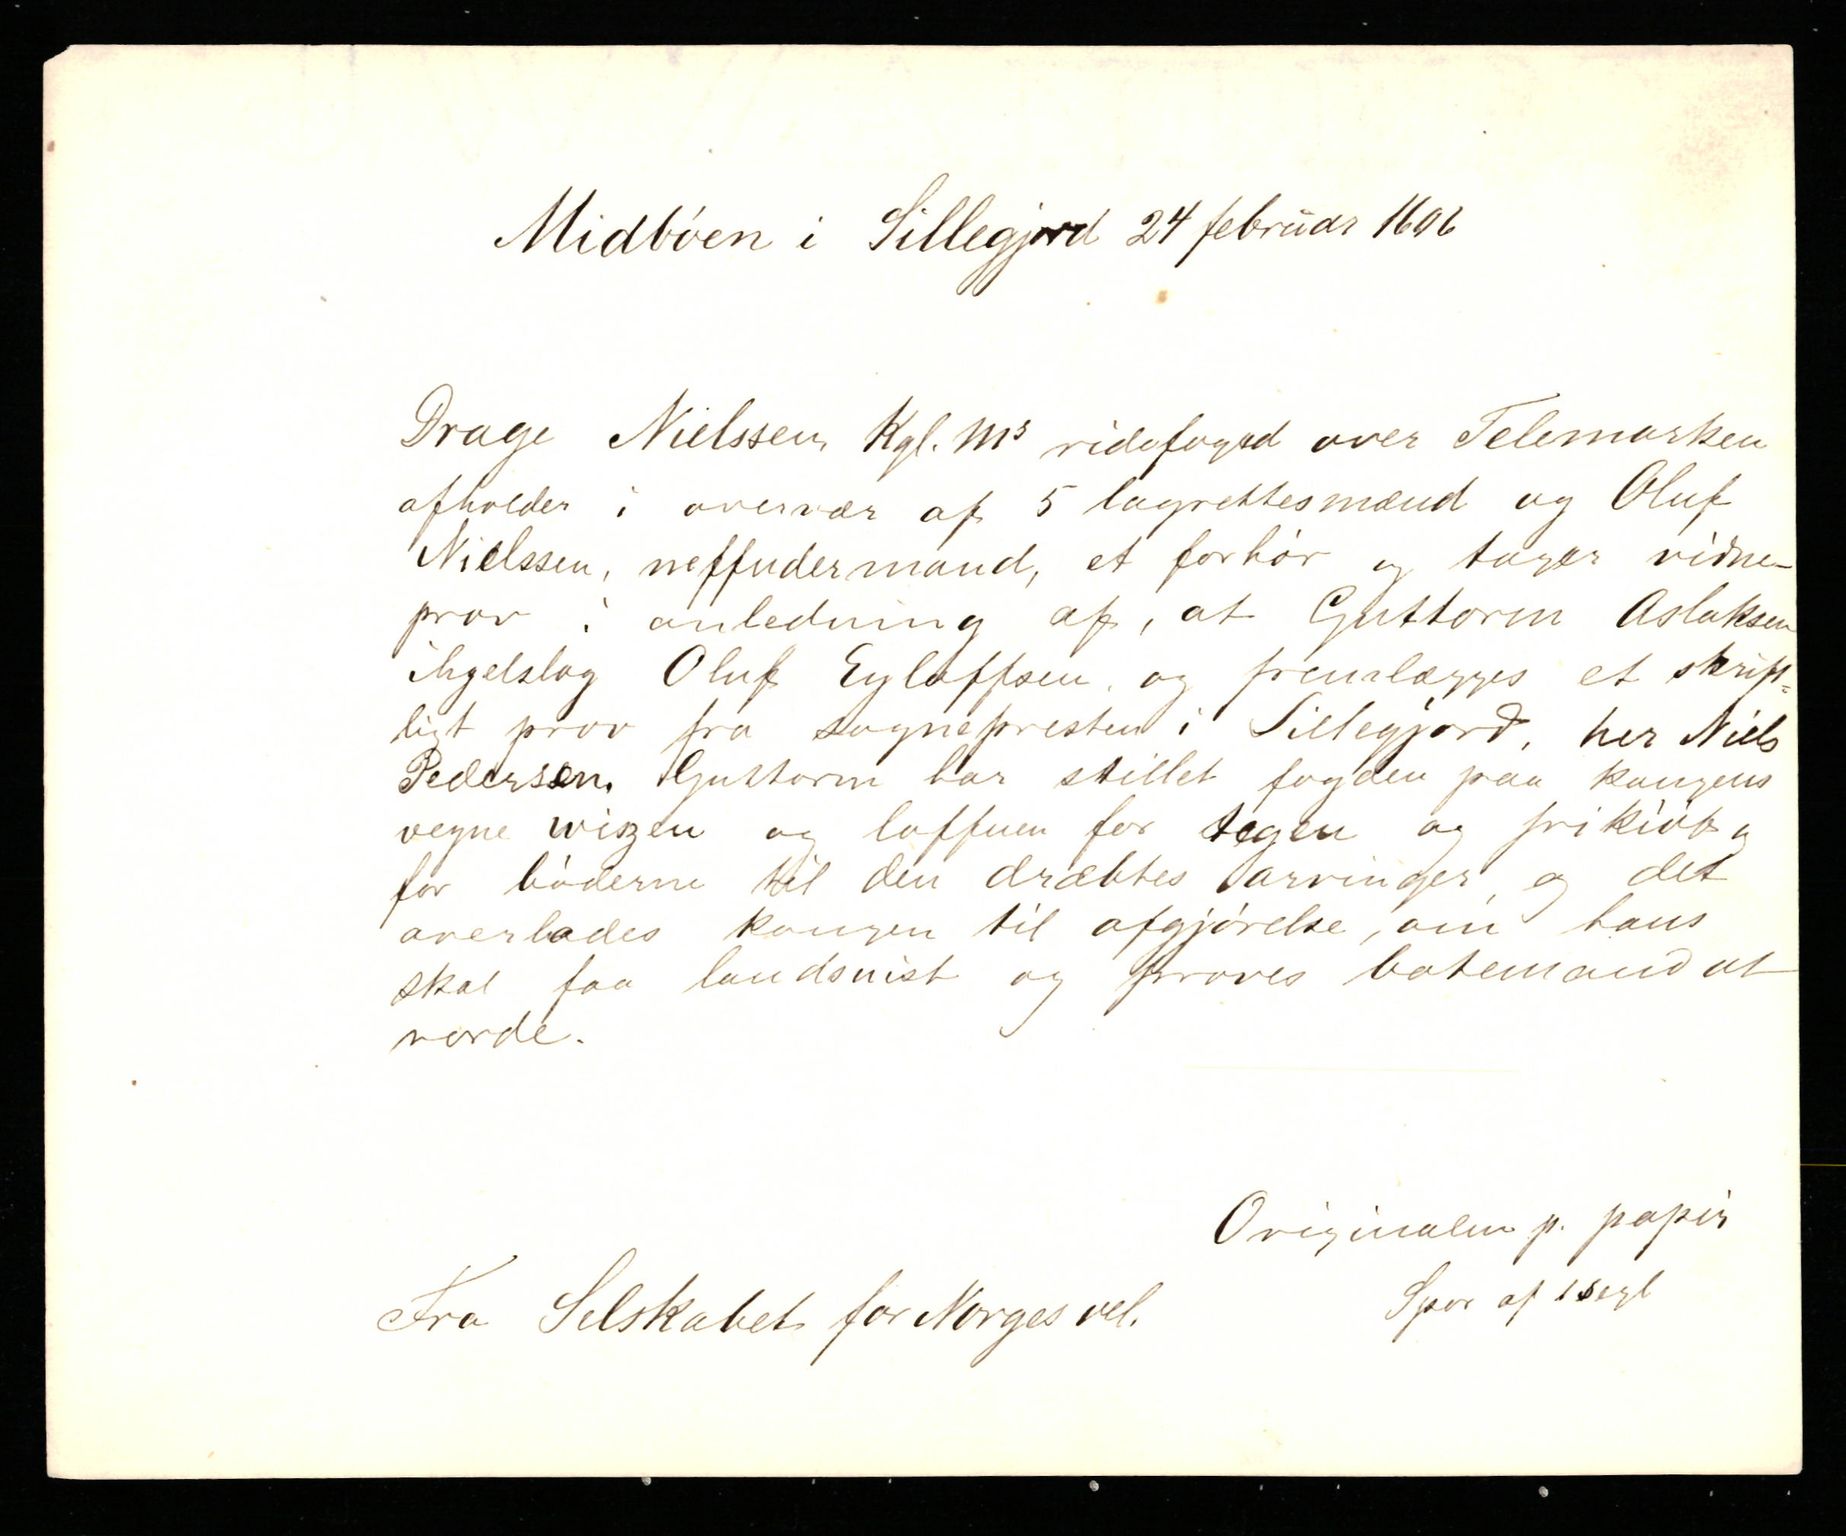 Midbøen i Sillegjord 24 februar 1606
Drage Nielssen, Kgl. Ms ridefoged over Telemarken
afholder i overvær af 5 lagrettesmænd og Oluf
Nielssen, neffndermand, et forhør og tager vidne-
prov i anledning af, at Guttorm Aslaksen
ihgelslog Oluf Eyloffsen, og fremlægges et skrift=
ligt prov fra sognepresten i Sillegjord, her Niels
Pedersen. Guttorm har stillet fogden paa kongens
vegne wiszen og loffuen for tegen og frikiøb og
for bøderne til den dræbtes arvinger, og det
overlades kongen til afgjørelse, om hans
skal faa landsvist og prøves botemand at
vorde.
Originalen p. papir
Spor af 1 segl
Fra Selskabet for Norges vel.